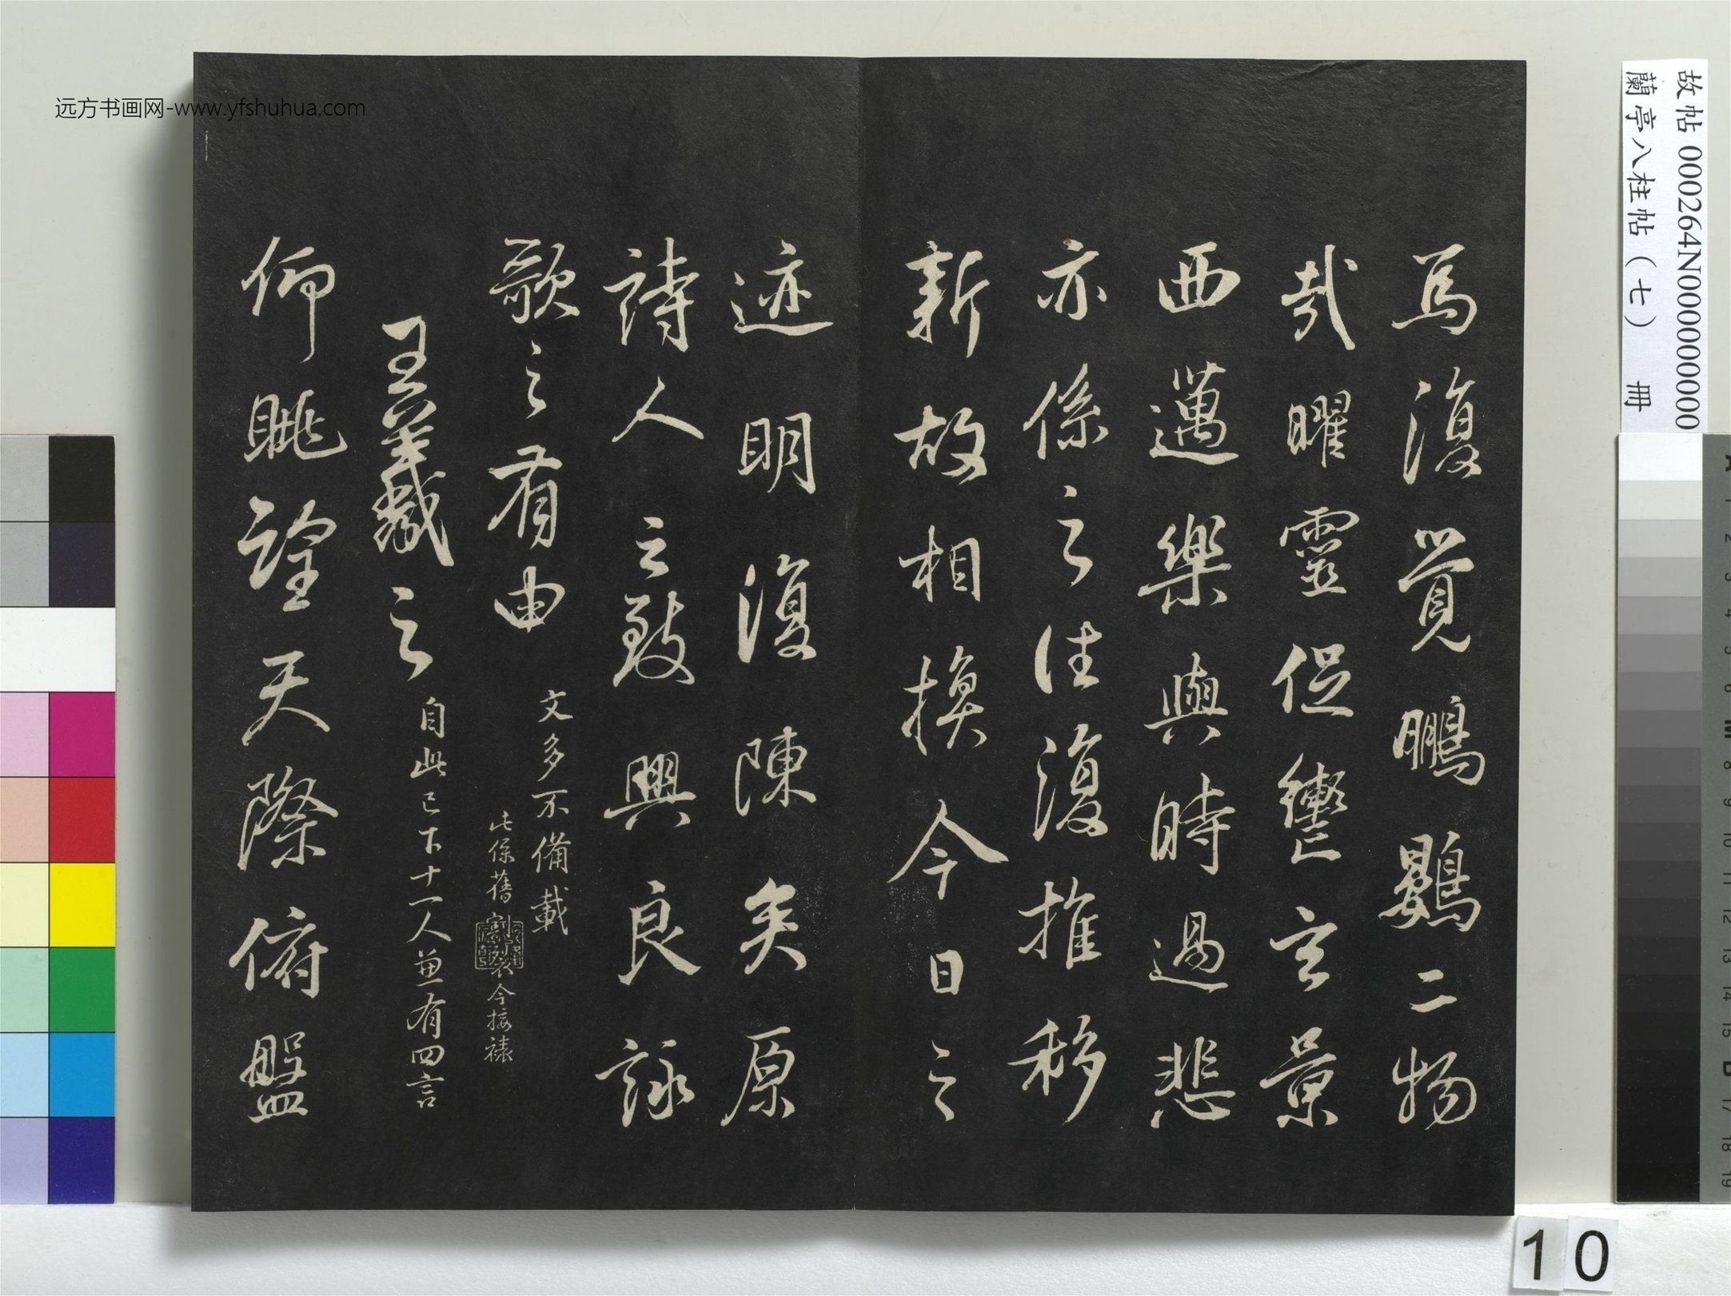 焉復覺鵬鷃二物
哉曜靈促轡玄景
西邁樂與時過悲
亦係之往復推移
新故相換今日之
迹明復陳矣原
詩人之致興良詠
歌之有由
文多不備載
王羲之
自此已下十一人兼有四言
仰眺望天際俯盤
远方书画网-www.yfshuhua.com
故帖 000264N000000000
蘭亭八柱帖（七） 冊
10